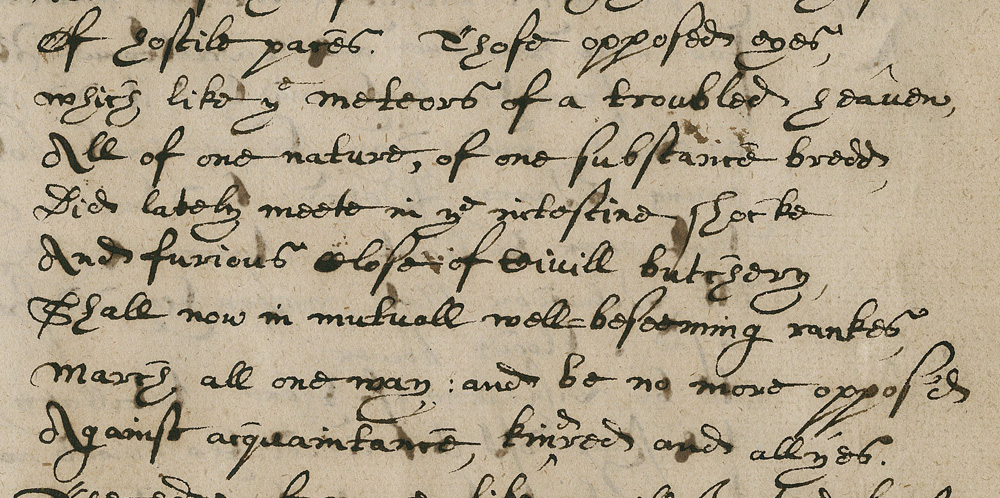 Of hostile paces. Those opposed eyes,
which like ye meteors of a troubled heauen,
All of one nature, of one substance bredd,
Did lately meete in ye intestine shocke
And furious close of Civill butchery,
Shall now in mutuall well=beseeming rankes,
March all one way: and be no more opposed
Against acquaintance, kindred and allyes.